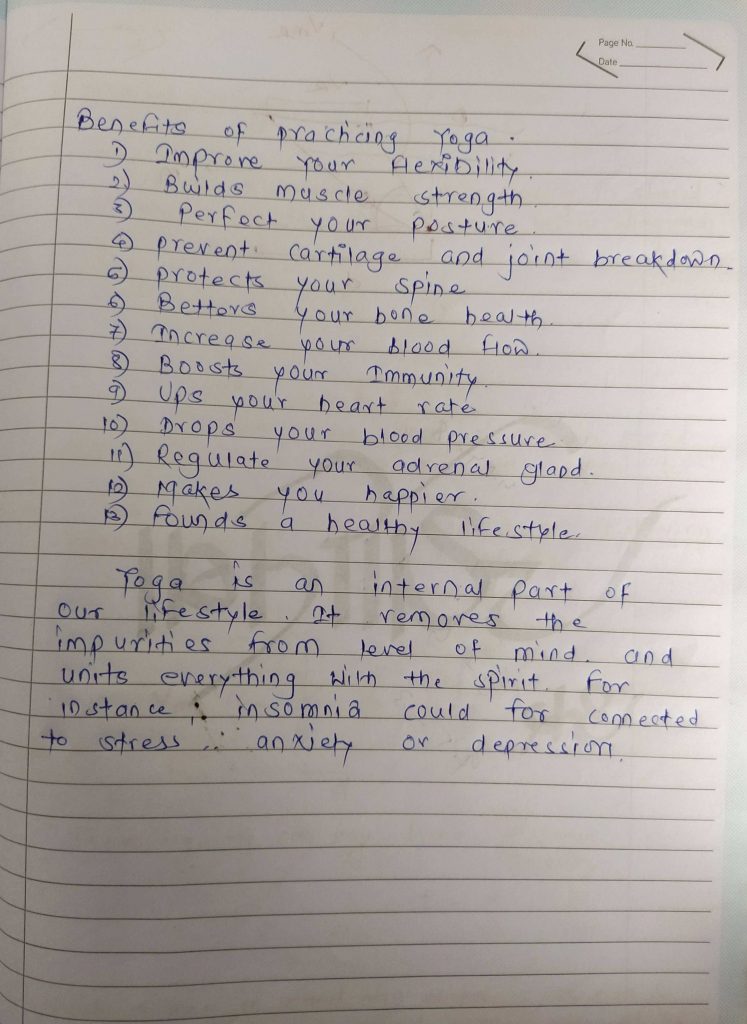 Page No.
Date
Benefits of practicing Yoga.
1) Improve your flexibility.
2) Builds muscle strength
3) Perfect your posture.
4) prevent cartilage and joint breakdown.
5) protects your spine
6) Betters your bone health.
7) Increase your blood flow.
8) Boosts your Immunity.
9) Ups your heart rate
10) Drops your blood pressure.
11) Regulate your adrenal gland.
12) Makes you happier.
13) founds a healthy lifestyle.
Yoga is an internal part of
our lifestyle. It removes the
impurities from level of mind. and
units everything with the spirit. For
instance ; insomnia could for connected
to stress ; anxiety or depression.